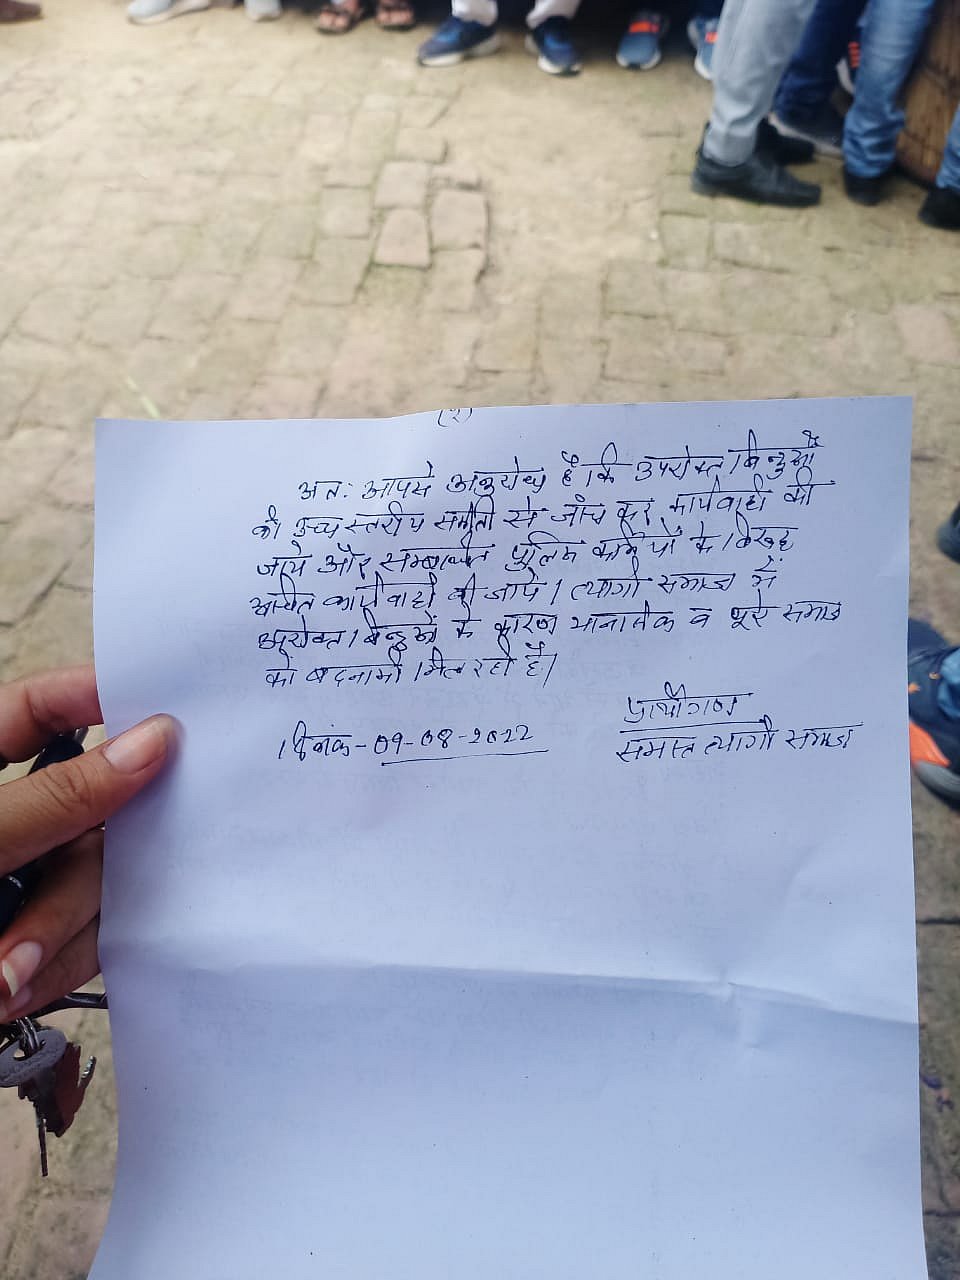 (२)
अतः आपसे अनुरोध है कि उपरोक्त बिन्दुओं
की उच्च स्तरीय समीती से जाँच कर कार्यवाही की
जाये और सम्बन्धित पुलिस कर्मियों के विरूद्ध
उचित कार्यवाही की जाये। त्यागी समाज में
उपरोक्त बिन्दुओं के कारण मानसिक व पूरे समाज
को बदनामी मिल रही है।
दिनांक-09-08-2022
प्रार्थीगण
समस्त त्यागी समाज